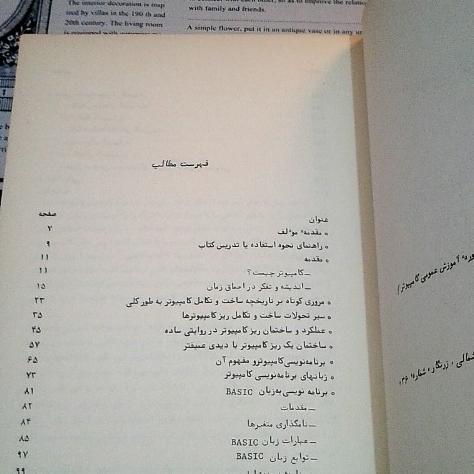 The interior decoration is
used by villas in the 190 th and
20th century. The living room
with family and friends.
A simple flower, put it in an antique vase or in any
فهرست مطالب
عنوان صفحه
* مقدمهٔ مؤلف ۷
* راهنمای نحوه استفاده یا تدریس کتاب ۹
* مقدمه ۱۱
ــ کامپیوتر چیست؟ ۱۱
ــ اندیشه و تفکر در اعماق زمان ۱۵
* مروری کوتاه بر تاریخچه ساخت و تکامل کامپیوتر به طور کلی ۲۳
* سیر تحولات ساخت و تکامل ریز کامپیوترها ۳۵
* عملکرد و ساختمان ریز کامپیوتر در روایتی ساده ۴۵
* ساختمان یک ریز کامپیوتر با دیدی عمیقتر ۵۷
* برنامه‌نویسی کامپیوتر و مفهوم آن ۶۵
* زبانهای برنامه‌نویسی کامپیوتر ۷۳
* برنامه نویسی به‌زبان BASIC ۸۱
ــ مقدمات ۸۲
ــ نامگذاری متغیرها ۸۴
ــ عبارات زبان BASIC ۸۵
ــ توابع زبان BASIC ۹۷
۹۹
آموزش عمومی کامپیوتر /
شمالی ، زرتگار شماره